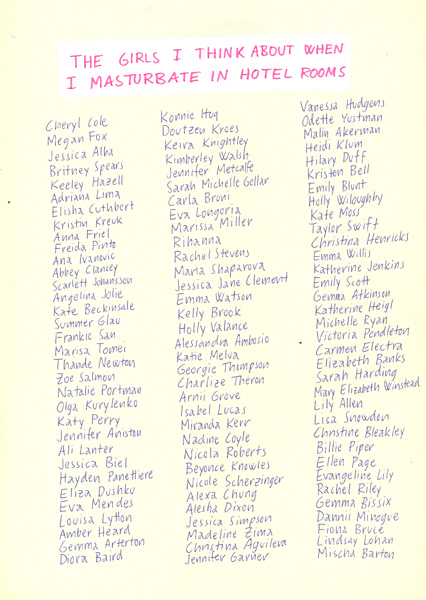 THE GIRLS I THINK ABOUT WHEN
I MASTURBATE IN HOTEL ROOMS
Cheryl Cole
Megan Fox
Jessica Alba
Britney Spears
Keeley Hazell
Adriana Lima
Elisha Cuthbert
Kristin Kreuk
Anna Friel
Freida Pinto
Ana Ivanovic
Abbey Clancey
Scarlett Johansson
Angelina Jolie
Kate Beckinsale
Summer Glau
Frankie San
Marisa Tomei
Thande Newton
Zoe Salmon
Natalie Portman
Olga Kurylenko
Katy Perry
Jennifer Aniston
Ali Lanter
Jessica Biel
Hayden Panettiere
Eliza Dushku
Eva Mendes
Louisa Lytton
Amber Heard
Gemma Arterton
Diora Baird
Konnie Huq
Doutzen Kroes
Keira Knightley
Kimberley Walsh
Jennifer Metcalfe
Sarah Michelle Gellar
Carla Bruni
Eva Longoria
Marissa Miller
Rihanna
Rachel Stevens
Maria Shaparova
Jessica Jane Clement
Emma Watson
Kelly Brook
Holly Valance
Alessandra Ambosio
Katie Melua
Georgie Thompson
Charlize Theron
Arnii Grove
Isabel Lucas
Miranda Kerr
Nadine Coyle
Nicola Roberts
Beyonce Knowles
Nicole Scherzinger
Alexa Chung
Alesha Dixon
Jessica Simpson
Madeline Zima
Christina Aguilera
Jennifer Garner
Vanessa Hudgens
Odette Yustman
Malin Akerman
Heidi Klum
Hilary Duff
Kristen Bell
Emily Blunt
Holly Willoughby
Kate Moss
Taylor Swift
Christina Henricks
Emma Willis
Katherine Jenkins
Emily Scott
Gemma Atkinson
Katherine Heigl
Michelle Ryan
Victoria Pendleton
Carmen Electra
Elizabeth Banks
Sarah Harding
Mary Elizabeth Winstead
Lily Allen
Lisa Snowdon
Christine Bleakley
Billie Piper
Ellen Page
Evangeline Lily
Rachel Riley
Gemma Bissix
Dannii Minogue
Fiona Bruce
Lindsay Lohan
Mischa Barton